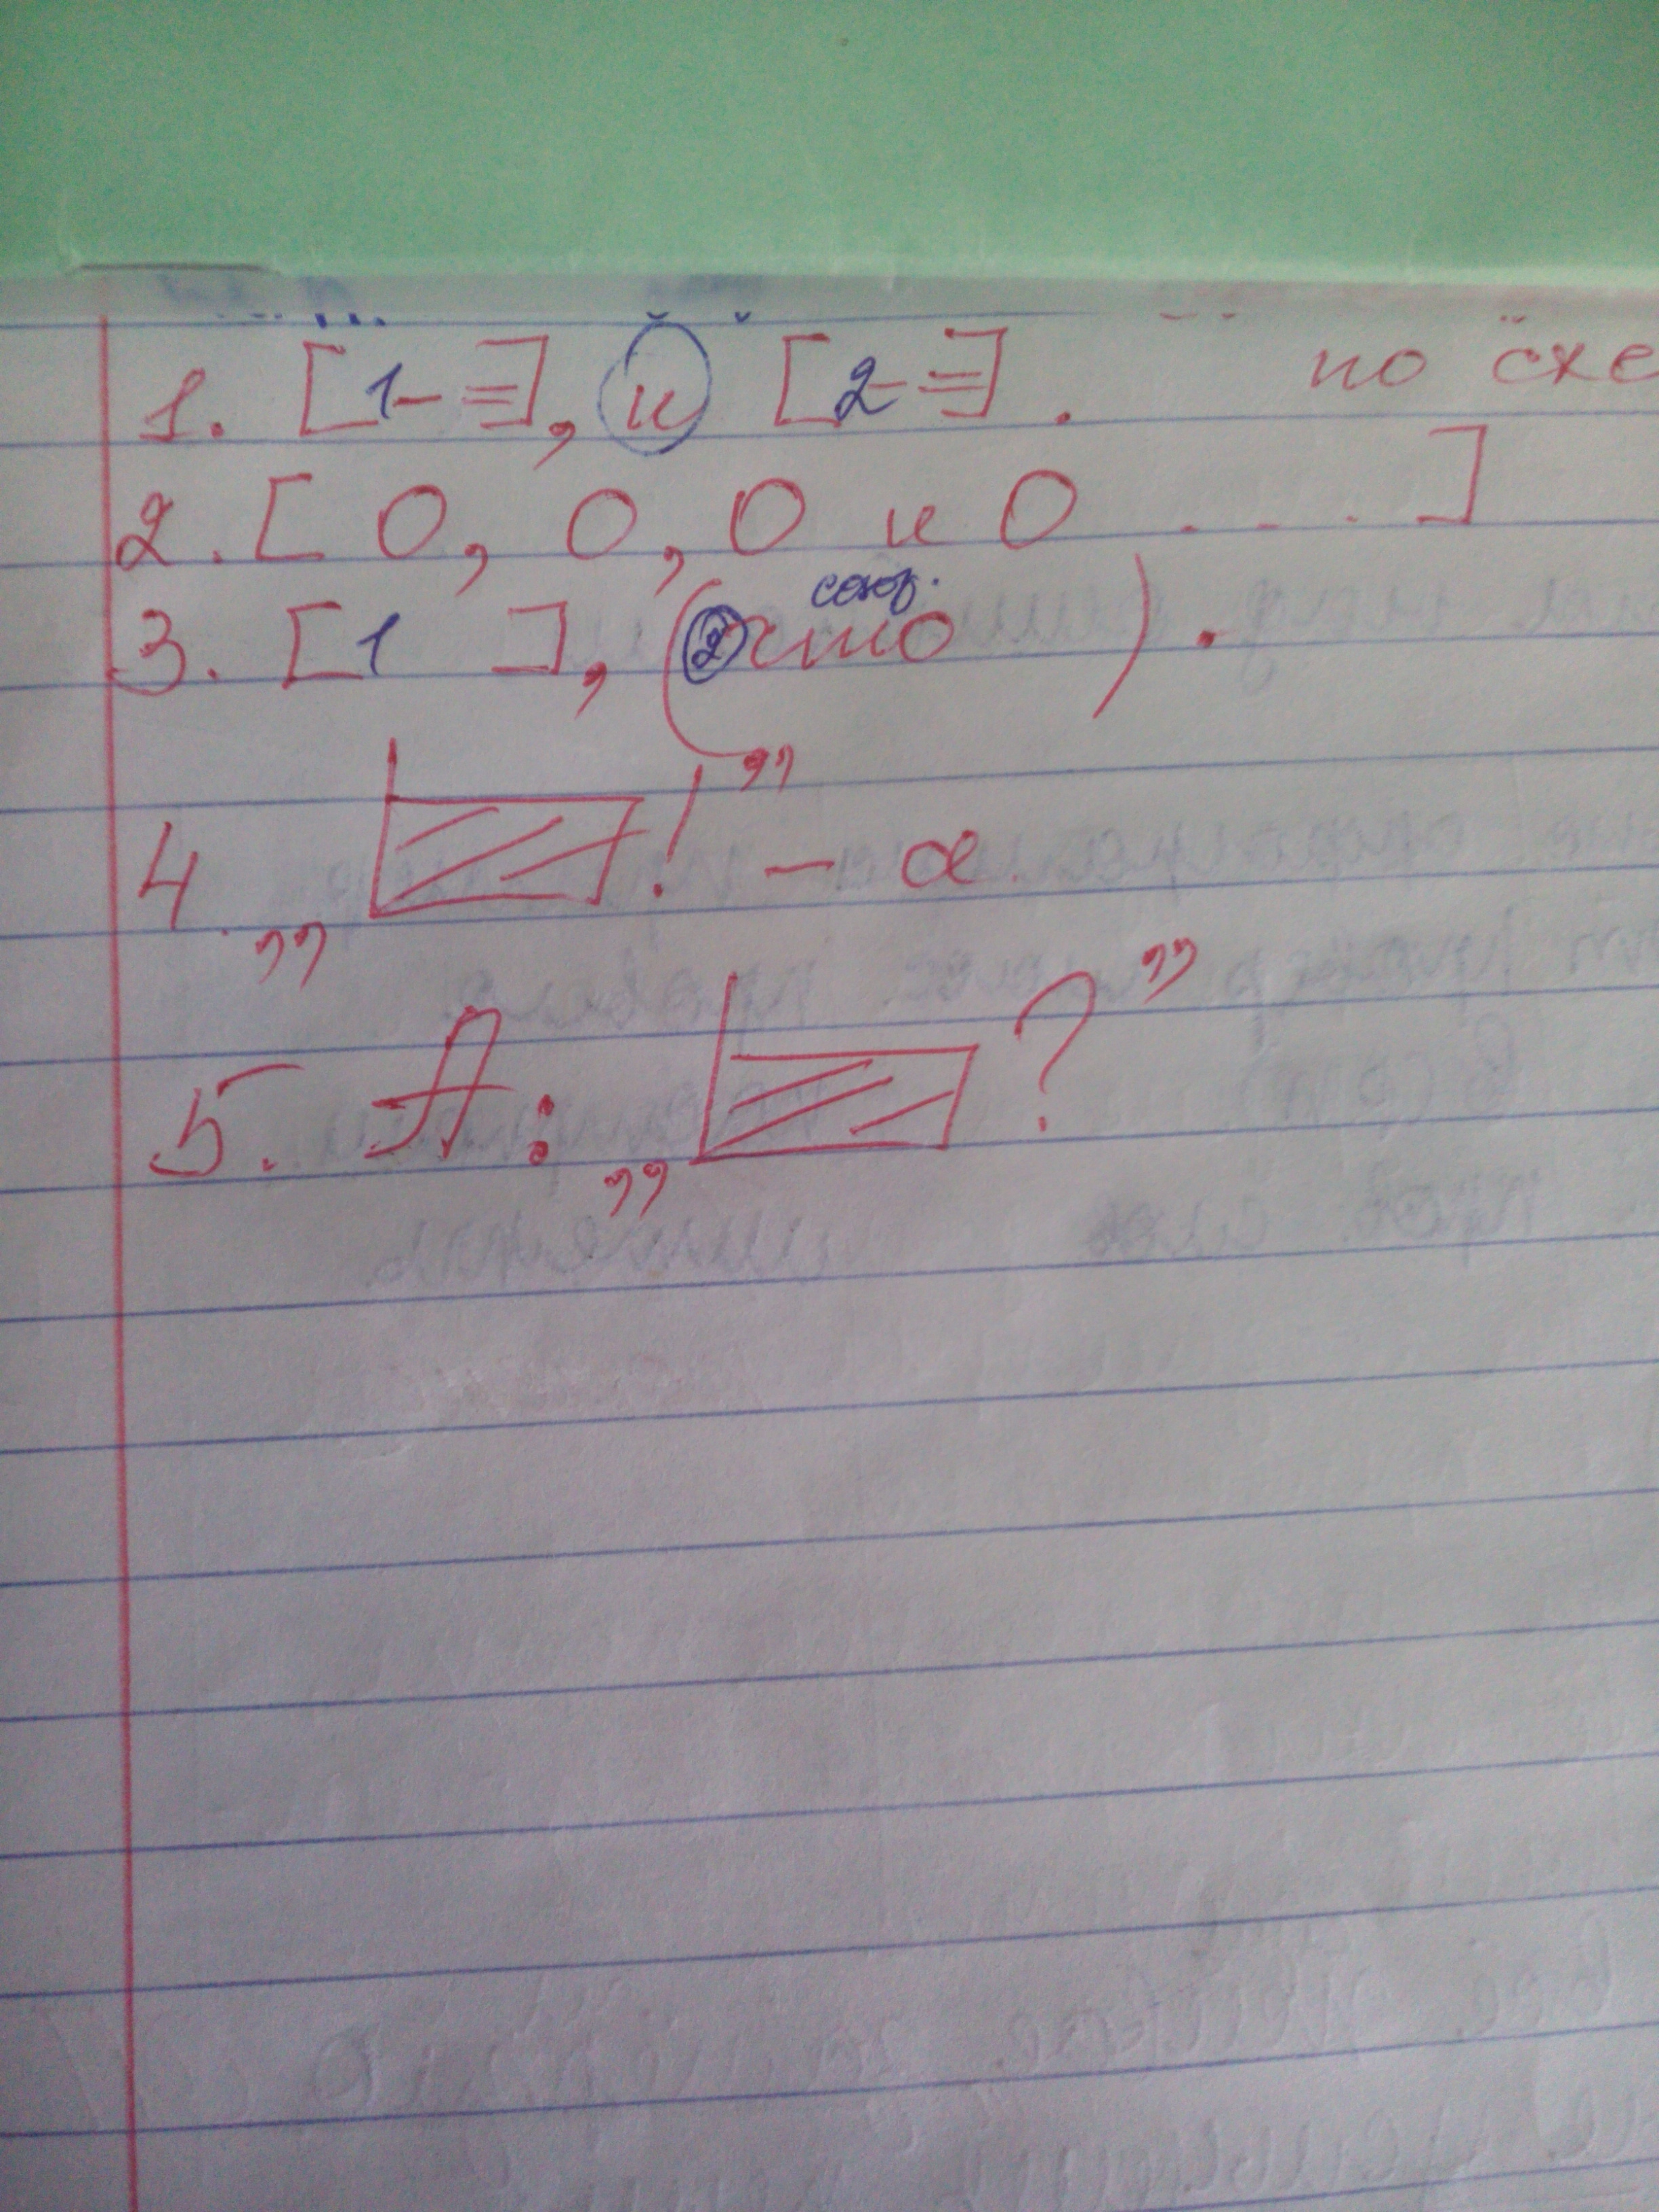 1. [1 – =], и [2 – =]. по схе
2. [ О, О, О и О . . . . ]
союз.
3. [1 ], (2 что ).
4. „ ! ” – а.
5. А: „ ? ”